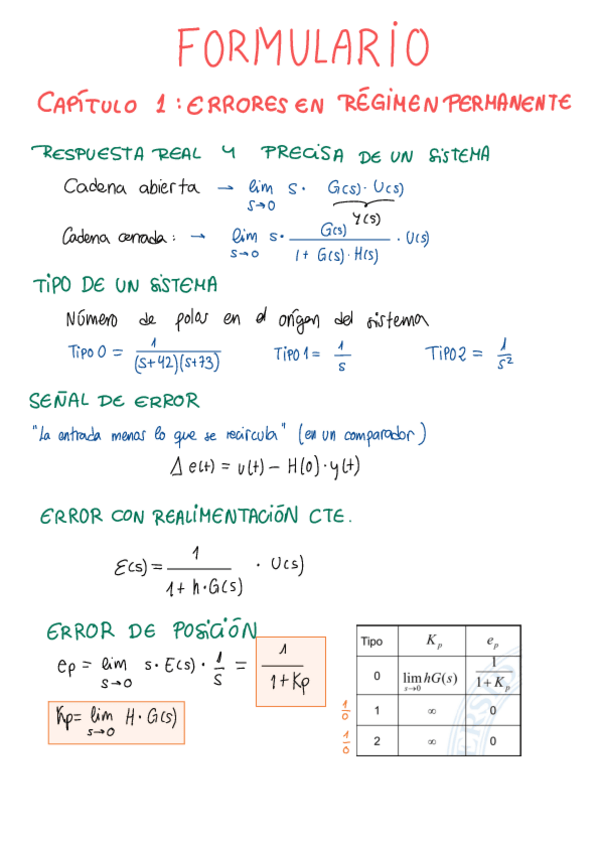 FORMULARIO
CAPÍTULO 1: ERRORES EN RÉGIMEN PERMANENTE
RESPUESTA REAL Y PRECISA DE UN SISTEMA
Cadena abierta → lim s→0 s · G(s) · U(s)
Y(s)
Cadena cerrada: → lim s→0 s · G(s) / 1 + G(s) · H(s) · U(s)
TIPO DE UN SISTEMA
Número de polos en el origen del sistema
Tipo 0 = 1 / (s+42)(s+73) TIPO 1 = 1 / s TIPO 2 = 1 / s²
SEÑAL DE ERROR
"La entrada menos lo que se recircula" (en un comparador)
Δ e(t) = u(t) − H(0) · y(t)
ERROR CON REALIMENTACIÓN CTE.
E(s) = 1 / 1 + h · G(s) · U(s)
ERROR DE POSICIÓN
ep = lim s→0 s · E(s) · 1 / s = 1 / 1 + Kp
Kp = lim s→0 H · G(s)
Tipo K_p e_p
0 lim s→0 hG(s) 1 / 1 + K_p
1/0 1 ∞ 0
1/0 2 ∞ 0